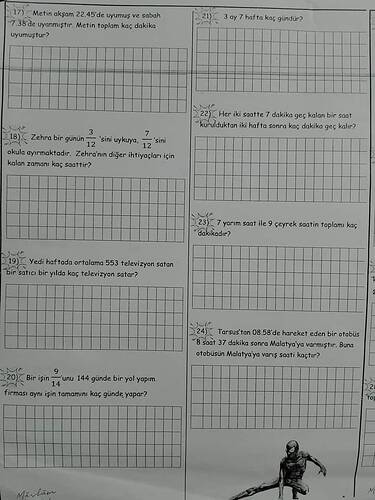 17) Metin akşam 22.45'de uyumuş ve sabah
7.38'de uyanmıştır. Metin toplam kaç dakika
uyumuştur?
18) Zehra bir günün 3/12 'sini uykuya, 7/12 'sini
okula ayırmaktadır. Zehra'nın diğer ihtiyaçları için
kalan zamanı kaç saattir?
19) Yedi haftada ortalama 553 televizyon satan
bir satıcı bir yılda kaç televizyon satar?
20) Bir işin 9/14 'unu 144 günde bir yol yapım
firması aynı işin tamamını kaç günde yapar?
21) 3 ay 7 hafta kaç gündür?
22) Her iki saatte 7 dakika geç kalan bir saat
kurulduktan iki hafta sonra kaç dakika geç kalır?
23) 7 yarım saat ile 9 çeyrek saatin toplamı kaç
dakikadır?
24) Tarsus'tan 08.58'de hareket eden bir otobüs
8 saat 37 dakika sonra Malatya'ya varmıştır. Buna
otobüsün Malatya'ya varış saati kaçtır?